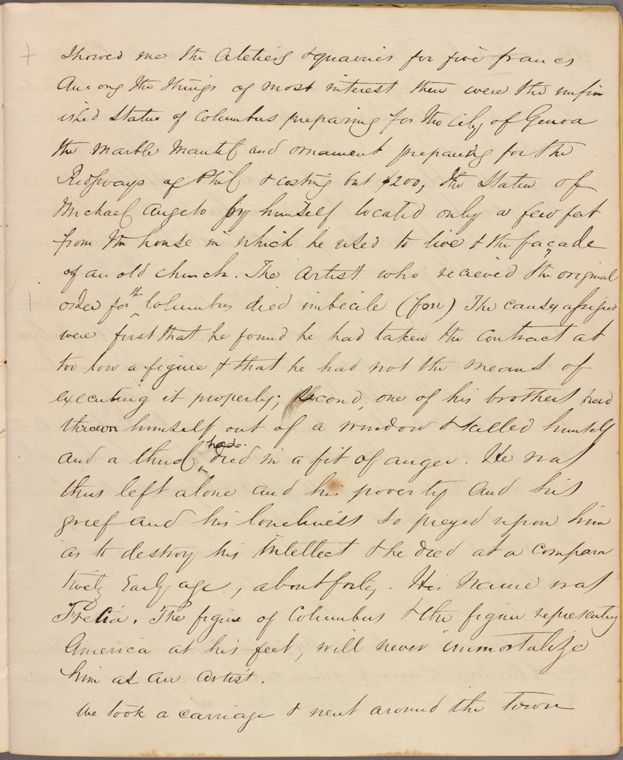 Showed me the Ateliers & quarries for five francs
Among the things of most interest there were the unfin
ished Statue of Columbus preparing for the City of Genoa
the Marble Mantel and ornament preparing for the
Ridgways of Phil & costing but $200, the Statue of
Michael Angelo by himself located only a few feet
from the house in which he used to live & the façade
of an old church. The artist who received the original
order for the Columbus died imbecile (fou) The causes assigned
were first that he found he had taken the contract at
too low a figure & that he had not the means of
executing it properly; second, one of his brothers had
thrown himself out of a window & killed himself
and a third had died in a fit of anger. He was
thus left alone and his poverty and his
grief and his loneliness so preyed upon him
as to destroy his intellect & he died at a compara
tively Early age, about forty. His name was
The figure of Columbus & the figure representing
America at his feet, will never immortalize
him as an artist.
We took a carriage & went around the town